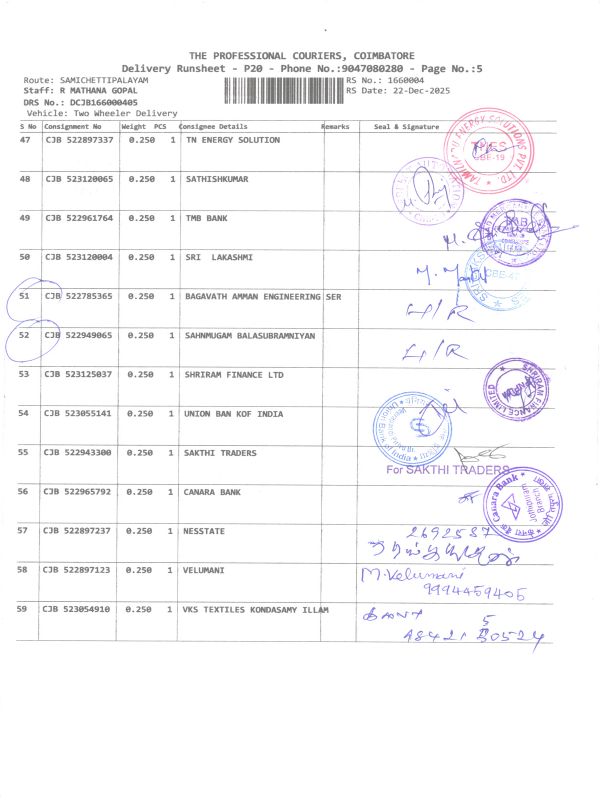 THE PROFESSIONAL COURIERS, COIMBATORE
Delivery Runsheet - P20 - Phone No.:9047080280 - Page No.:5
Route: SAMICHETTIPALAYAM RS No.: 1660004
Staff: R MATHANA GOPAL RS Date: 22-Dec-2025
DRS No.: DCJB166000405
Vehicle: Two Wheeler Delivery
S No Consignment No Weight PCS Consignee Details Remarks Seal & Signature
47 CJB 522897337 0.250 1 TN ENERGY SOLUTION
48 CJB 523120065 0.250 1 SATHISHKUMAR
49 CJB 522961764 0.250 1 TMB BANK
50 CJB 523120004 0.250 1 SRI LAKASHMI
51 CJB 522785365 0.250 1 BAGAVATH AMMAN ENGINEERING SER
52 CJB 522949065 0.250 1 SAHNMUGAM BALASUBRAMNIYAN
53 CJB 523125037 0.250 1 SHRIRAM FINANCE LTD
SHRIRAM FINANCE LIMITED
54 CJB 523055141 0.250 1 UNION BAN KOF INDIA
Union Bank of India
55 CJB 522943300 0.250 1 SAKTHI TRADERS
For SAKTHI TRADERS
56 CJB 522965792 0.250 1 CANARA BANK
Canara Bank
Branch
57 CJB 522897237 0.250 1 NESSTATE 2692537
58 CJB 522897123 0.250 1 VELUMANI M.Velumani
9994459405
59 CJB 523054910 0.250 1 VKS TEXTILES KONDASAMY ILLAM